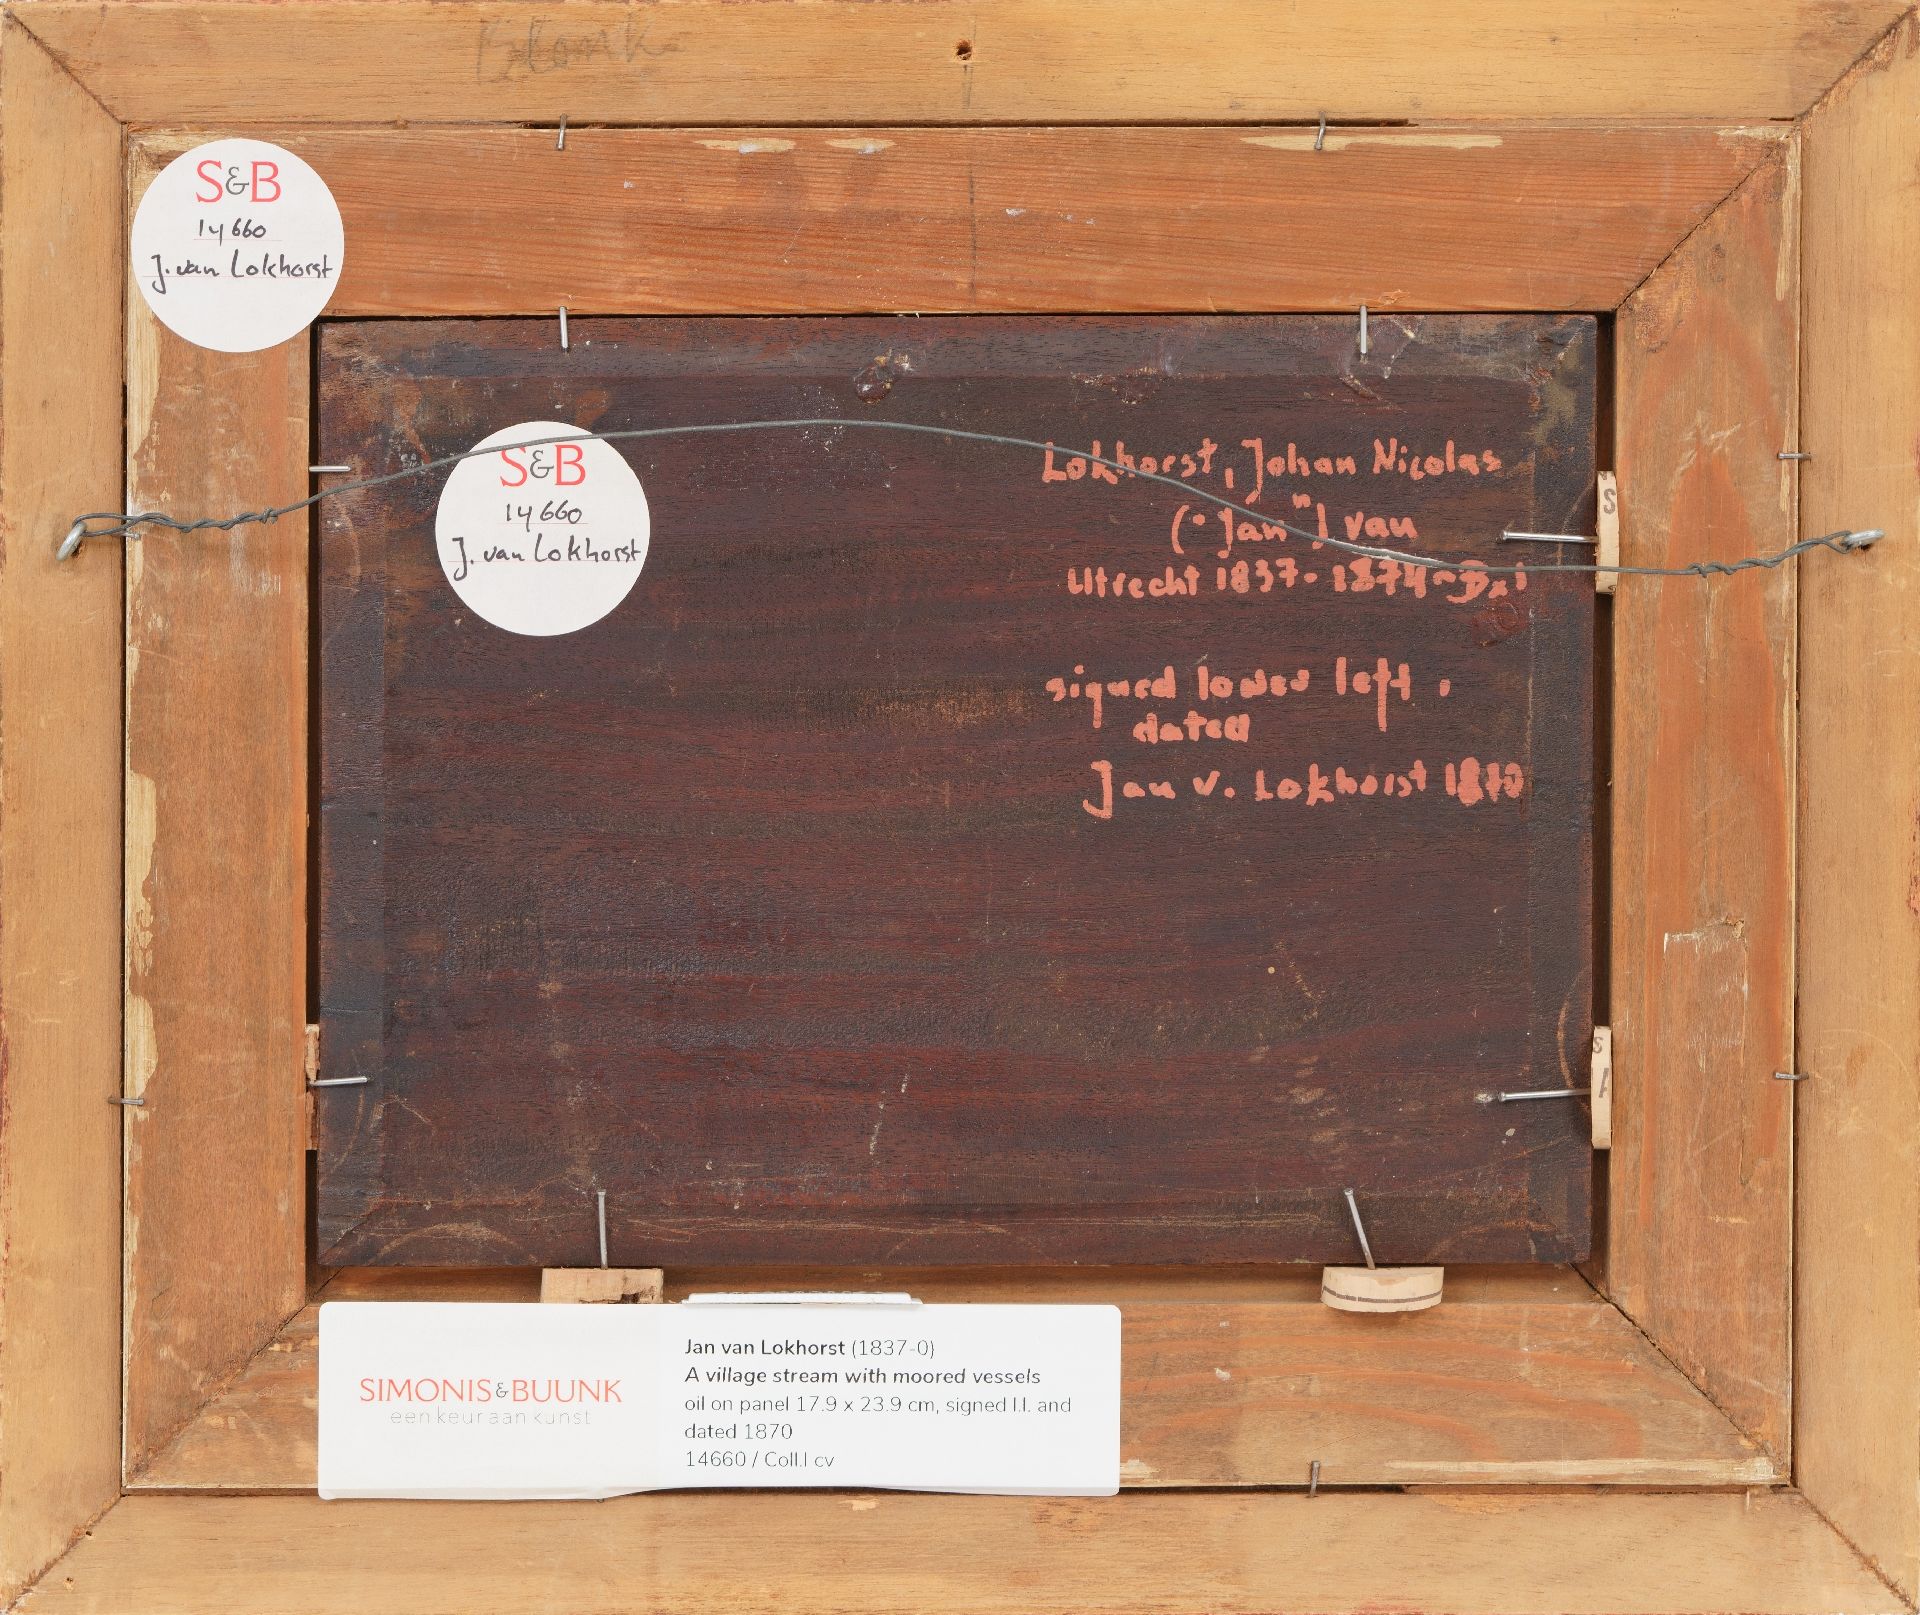 S&B
14660
J. van Lokhorst
S&B
14660
J. van Lokhorst
Lokhorst, Johan Nicolas
("Jan") van
Utrecht 1837 - 1874
signed lower left,
dated
Jan v. Lokhorst 1870
S
S
A
SIMONIS&BUUNK
een keur aan kunst
Jan van Lokhorst (1837-0)
A village stream with moored vessels
oil on panel 17.9 x 23.9 cm, signed l.l. and
dated 1870
14660 / Coll.I cv